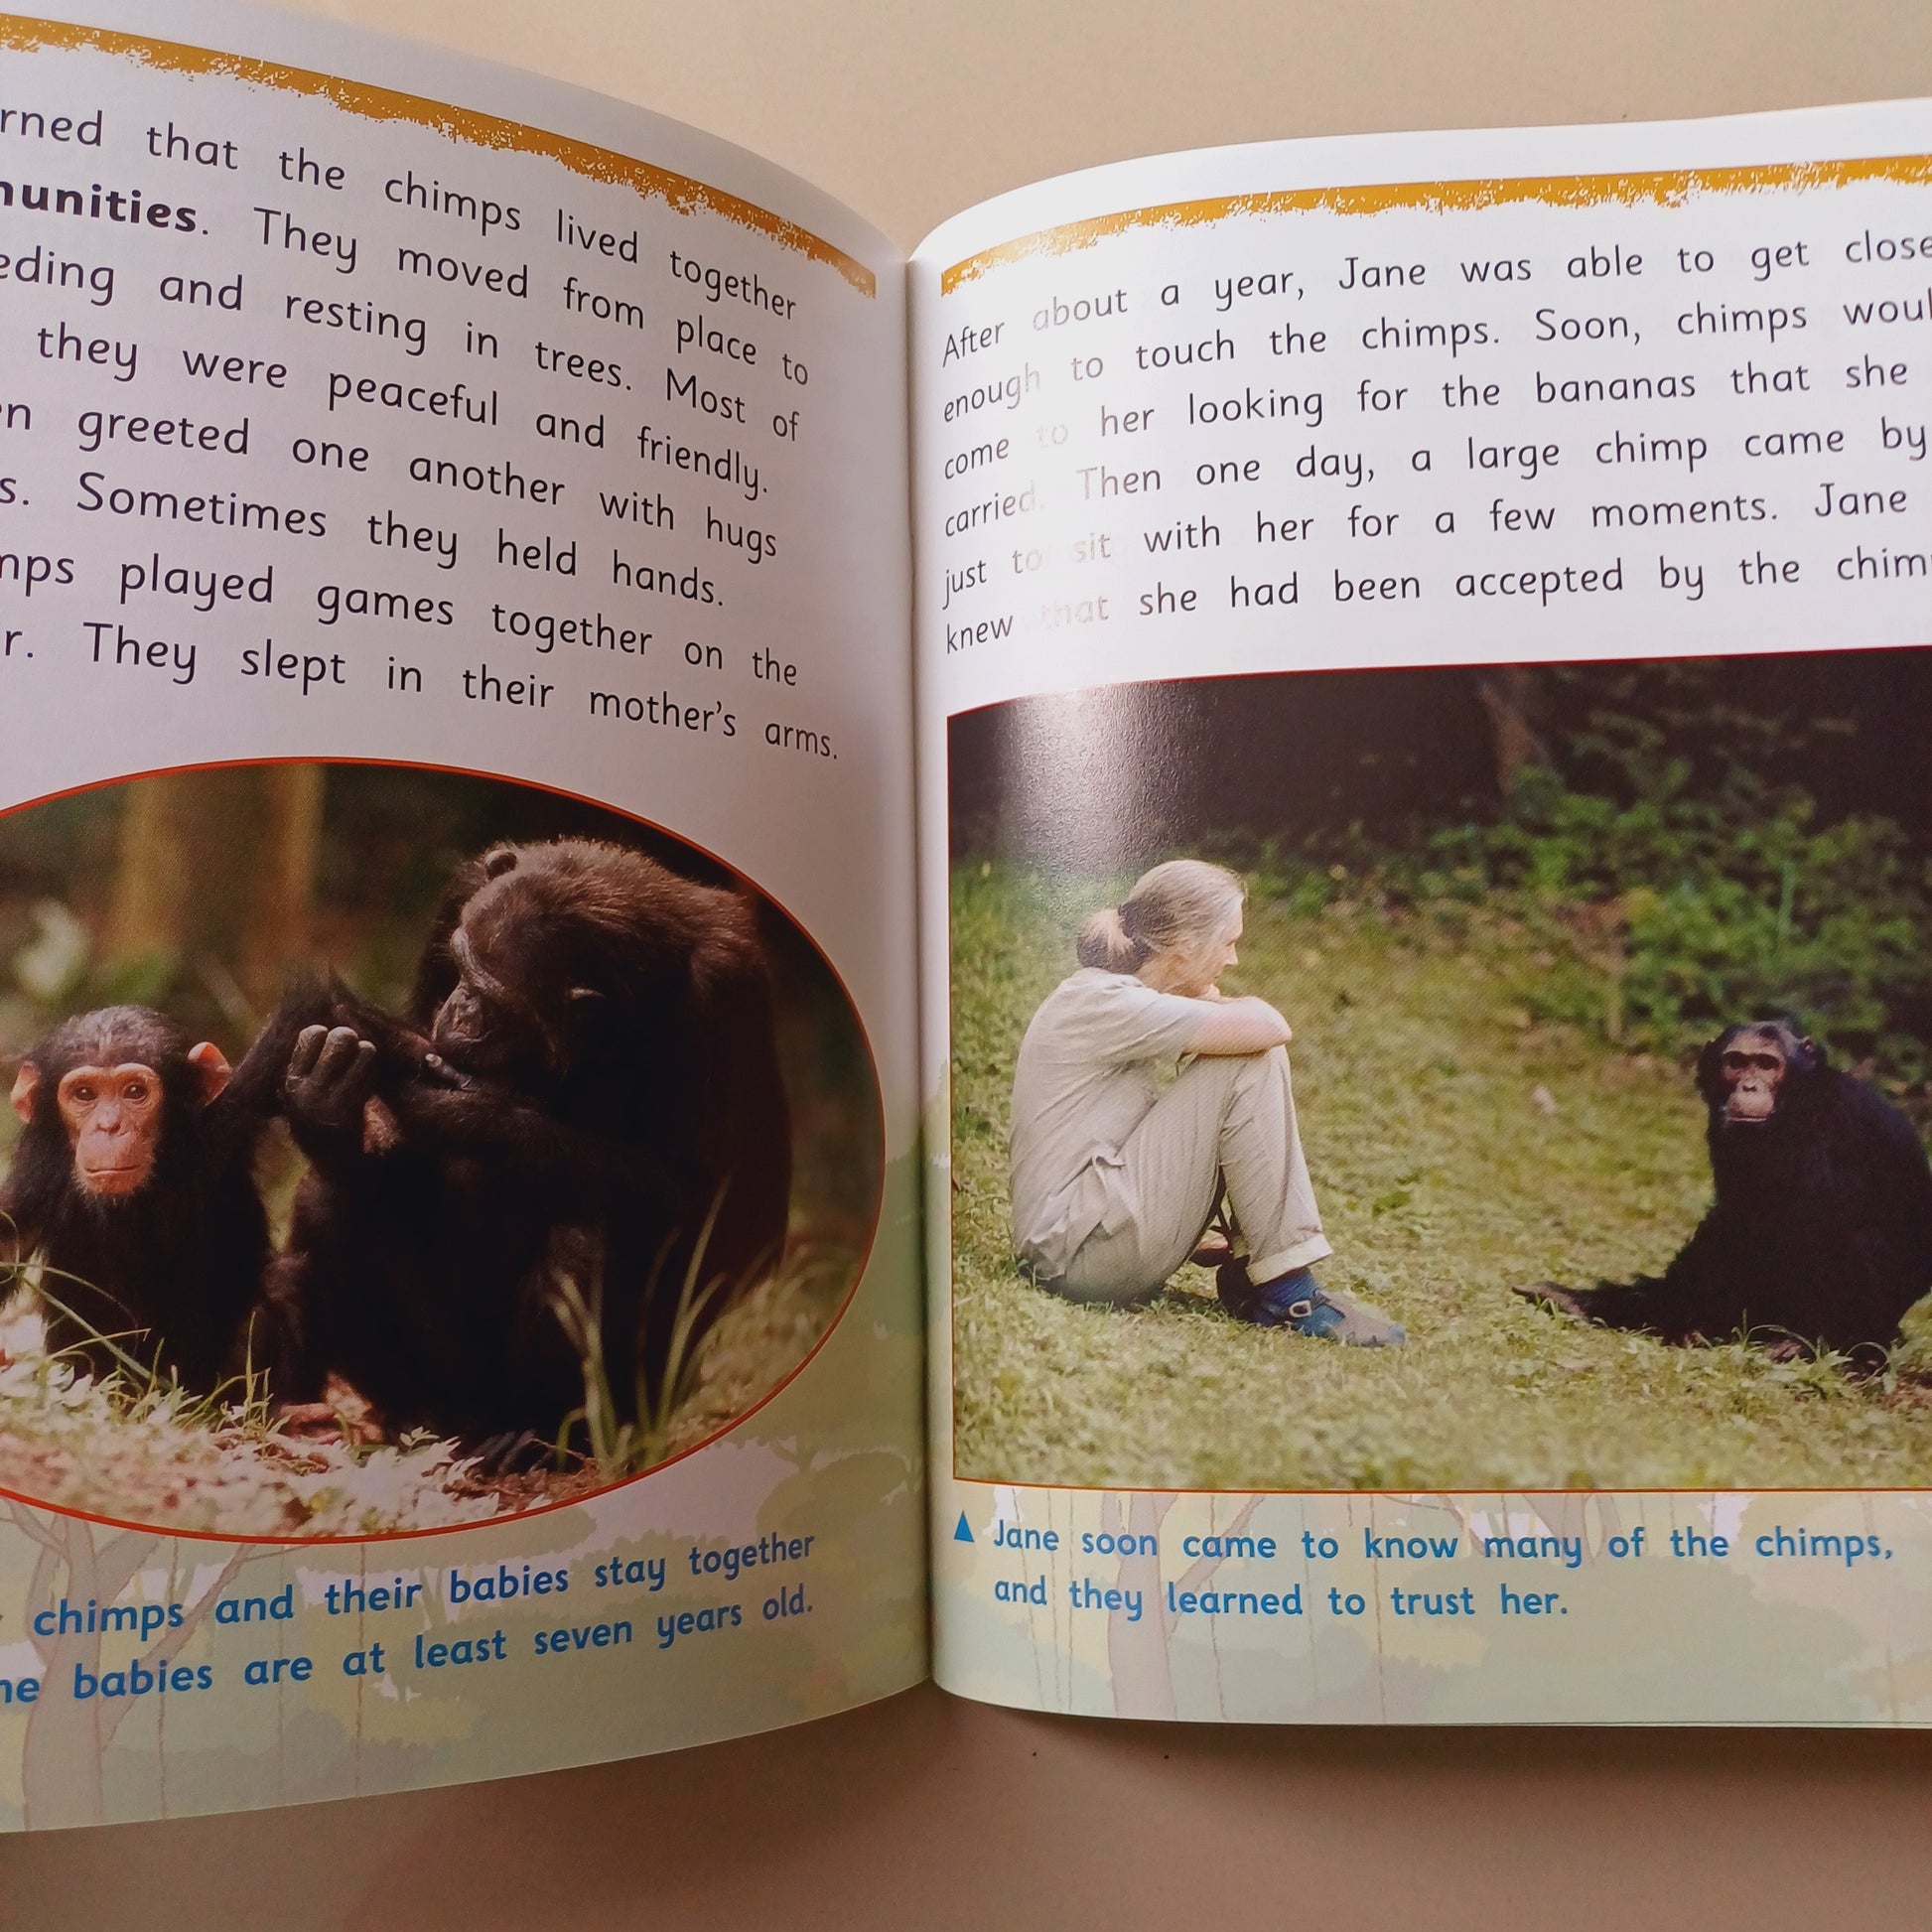 rned that the chimps lived together
munities. They moved from place to
eding and resting in trees. Most of
they were peaceful and friendly.
en greeted one another with hugs
s. Sometimes they held hands.
mps played games together on the
r. They slept in their mother's arms.
chimps and their babies stay together
he babies are at least seven years old.
After about a year, Jane was able to get close
enough to touch the chimps. Soon, chimps woul
come to her looking for the bananas that she
carried. Then one day, a large chimp came by
just to sit with her for a few moments. Jane
knew that she had been accepted by the chim
▲ Jane soon came to know many of the chimps,
and they learned to trust her.